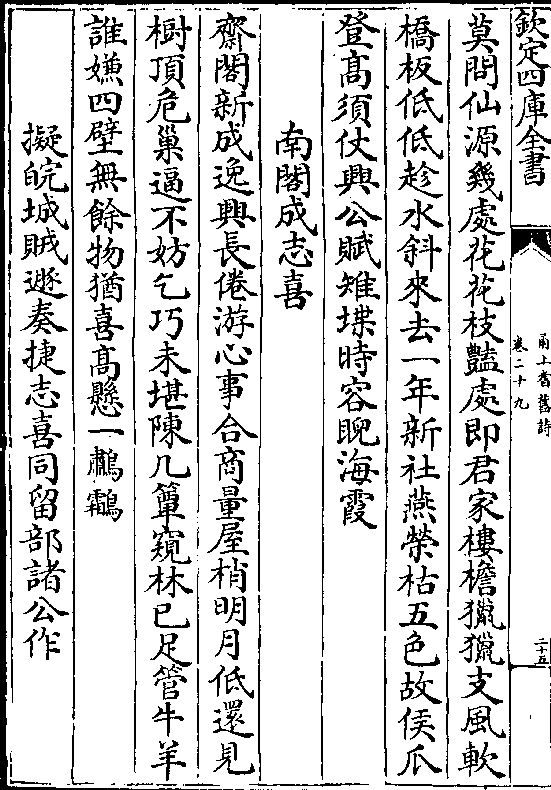 欽定四庫全書
甬上耆舊詩
卷二十九
二十五
莫問仙源幾處花花枝豔處即君家樓檐獵獵支風軟
橋板低低趁水斜來去一年新社燕榮枯五色故侯瓜
登髙須仗興公賦雉堞時容睨海霞
南閣成志喜
齋閣新成逸興長倦游心事合商量屋梢明月低還見
樹頂危巢逼不妨乞巧未堪陳几簟窺林已足管牛羊
誰嫌四壁無餘物猶喜髙懸一鷫鸘
擬皖城賊遯奏捷志喜同留部諸公作